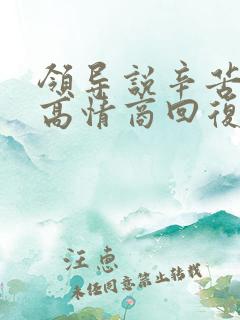 領导説辛苦
高情商回復
汪惠
未经同意禁止转载